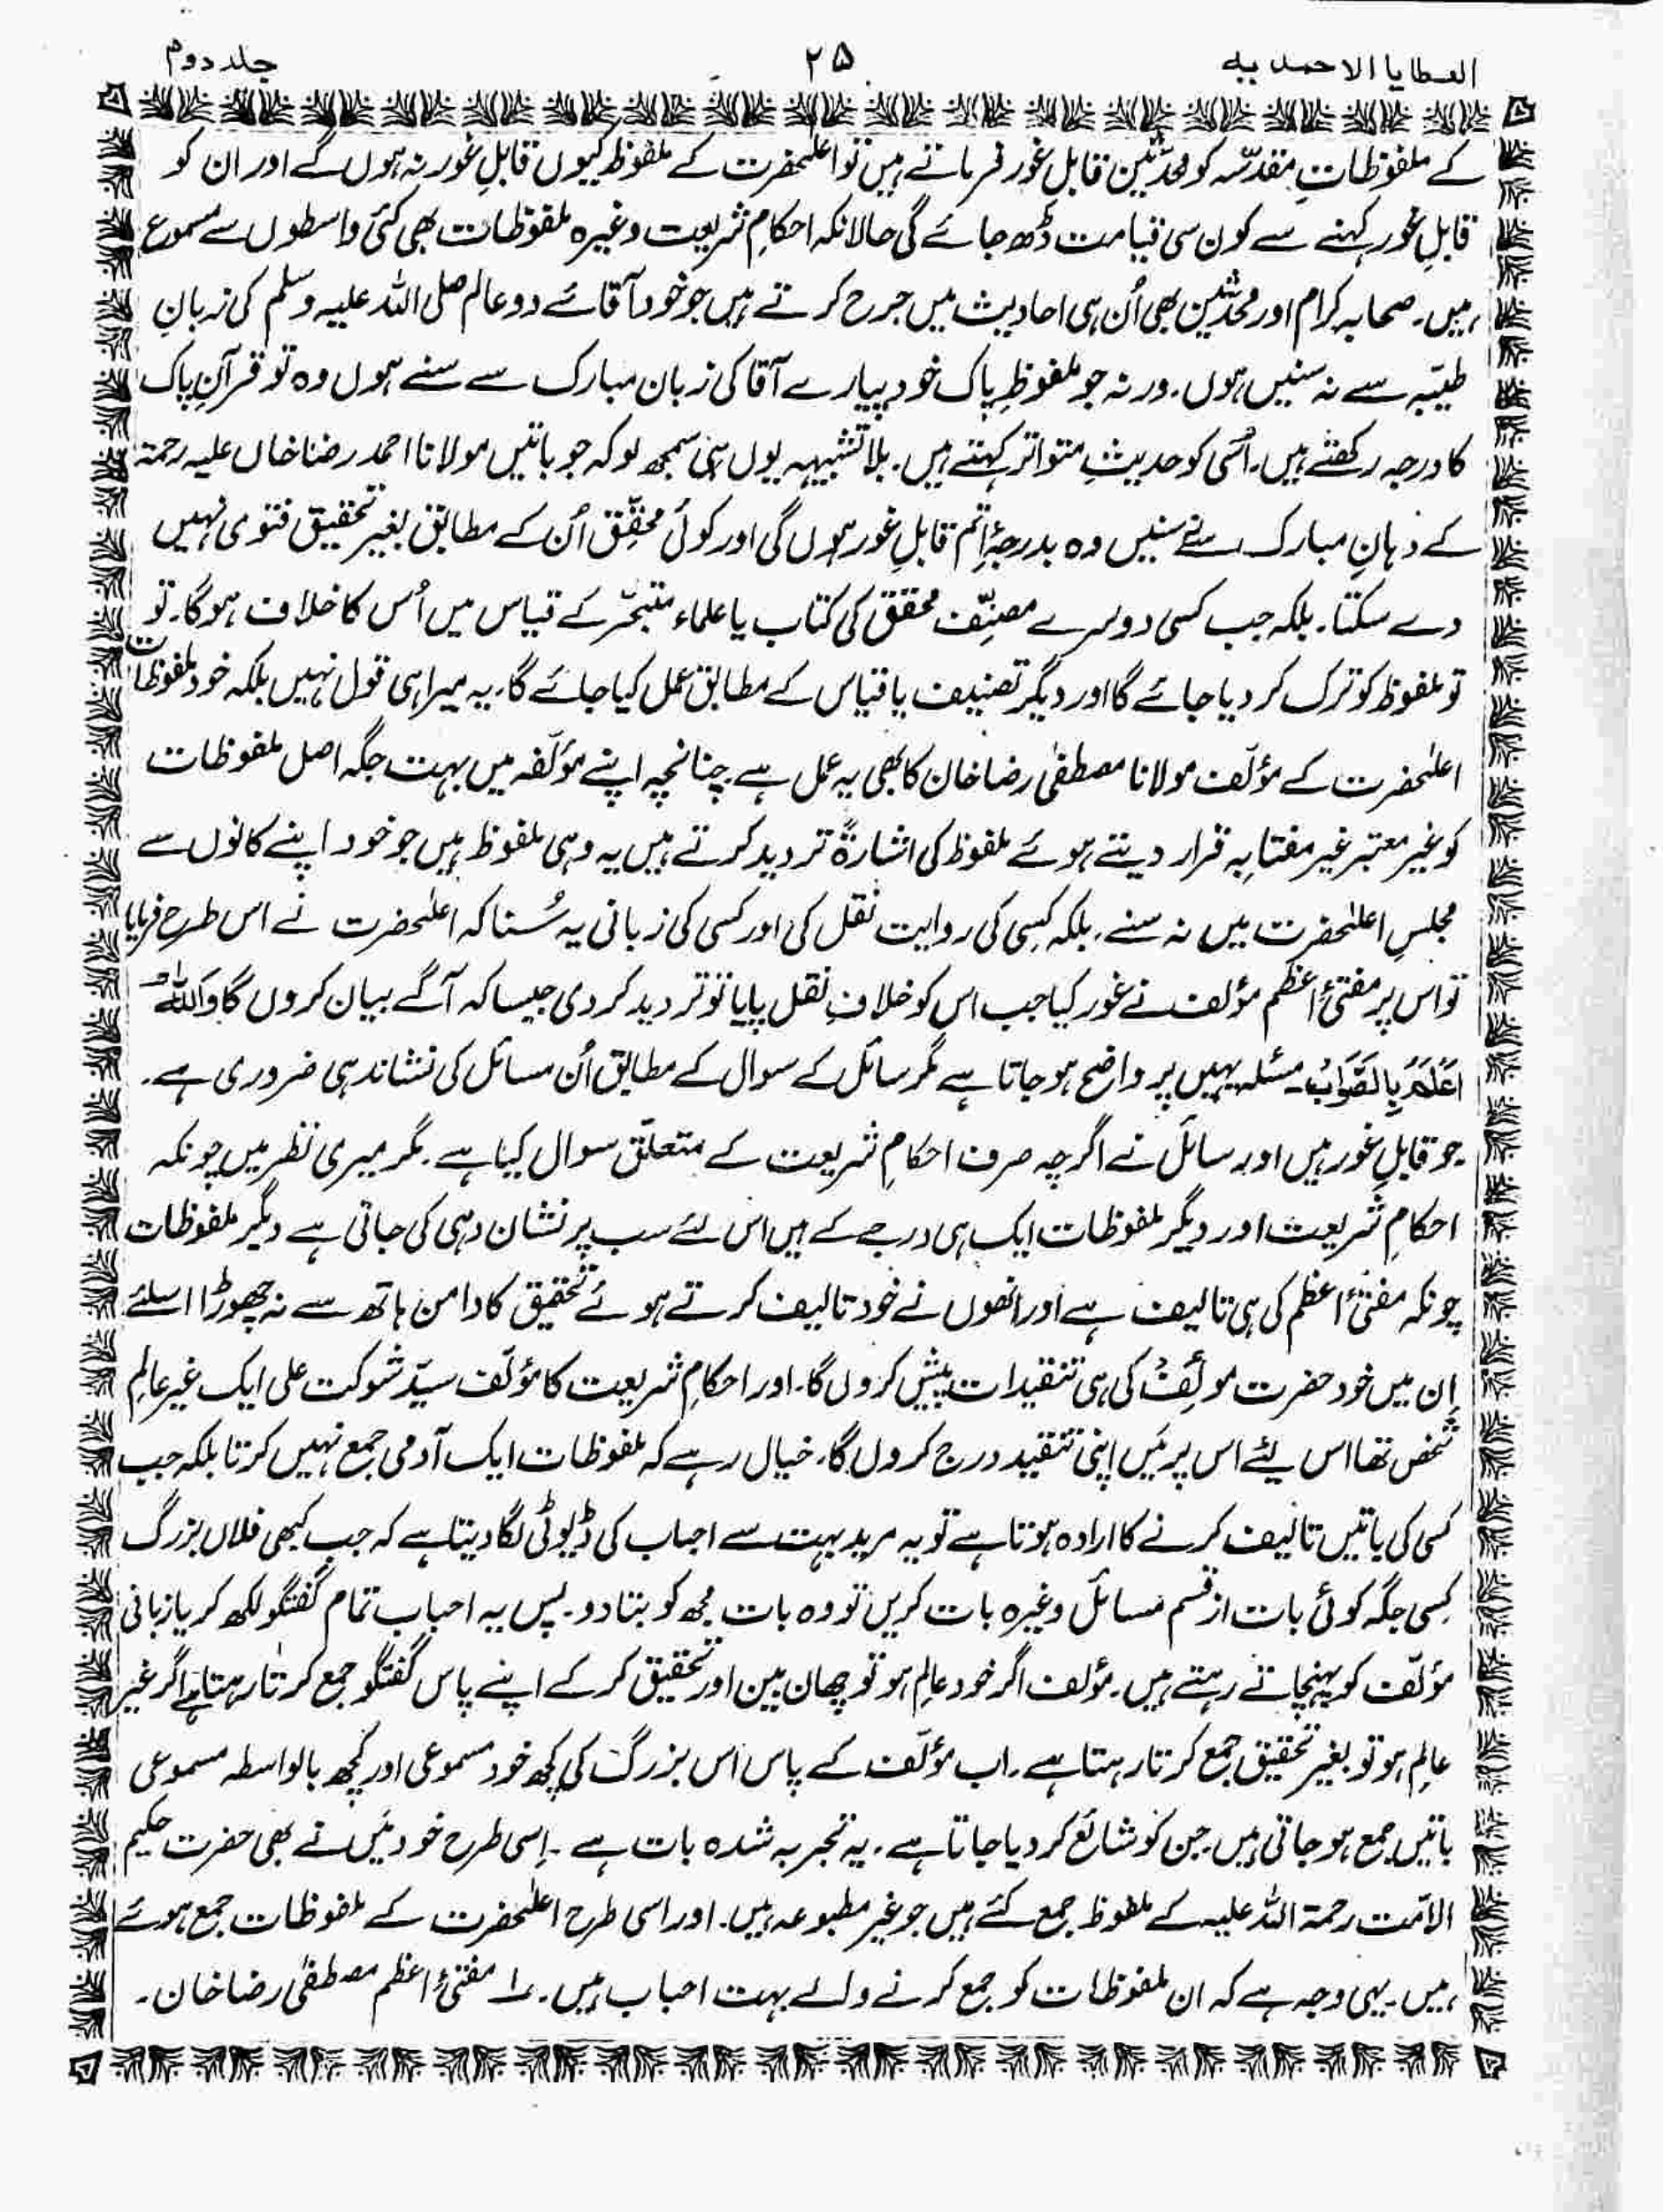 العطایا الاحمدیہ ۲۵ جلد دوم
کے ملفوظاتِ مقدسّہ کو محدّثین قابل غور فرماتے ہیں تو اعلٰحضرت کے ملفوظ کیوں قابلِ غور نہ ہوں گے اور ان کو
قابلِ غور کہنے سے کون سی قیامت ڈھ جائے گی حالانکہ احکامِ شریعت وغیرہ ملفوظات بھی کئی واسطوں سے مسموع
ہیں۔ صحابہ کرام اور محدثین بھی اُن ہی احادیث میں جرح کرتے ہیں جو خود آقائے دو عالم صلی اللہ علیہ وسلم کی زبانِ
طیبّہ سے نہ سنیں ہوں۔ ورنہ جو ملفوظِ پاک خود پیارے آقا کی زبان مبارک سے سنے ہوں وہ تو قرآنِ پاک
کا درجہ رکھتے ہیں۔ اُسی کو حدیثِ متواتر کہتے ہیں۔ بلا تشبیہہ یوں ہی سمجھ لو کہ جو باتیں مولانا احمد رضا خاں علیہ رحمۃ
کے دہانِ مبارک سے سنیں وہ بدرجۂ اتم قابلِ غور ہوں گی اور کوئی محقِّق اُن کے مطابق بغیر تحقیق فتوی نہیں
دے سکتا۔ بلکہ جب کسی دوسرے مصنِّف محقق کی کتاب یا علماء متبحّر کے قیاس میں اُس کا خلاف ہوگا۔ تو
تو ملفوظ کو ترک کر دیا جائے گا اور دیگر تصنیف یا قیاس کے مطابق عمل کیا جائے گا۔ یہ میرا ہی قول نہیں بلکہ خود ملفوظات
اعلٰحضرت کے مؤلّف مولانا مصطفٰی رضا خان کا بھی یہ عمل ہے۔ چنانچہ اپنے مؤلّفہ میں بہت جگہ اصل ملفوظات
کو غیر معتبر غیر مفتابہ قرار دیتے ہوئے ملفوظ کی اشارۃً تردید کرتے ہیں یہ وہی ملفوظ ہیں جو خود اپنے کانوں سے
مجلسِ اعلٰحضرت میں نہ سنے۔ بلکہ کِسی کی روایت نقل کی اور کسی کی زبانی یہ سُنا کہ اعلٰحضرت نے اس طرح فرمایا
تو اس پر مفتیٔ اعظم مؤلف نے غور کیا جب اس کو خلافِ نقل پایا تو تردید کر دی جیسا کہ آگے بیان کروں گا وَاللّٰہُ
اَعْلَمُ بِالصَّوَابْ۔ مسئلہ یہیں پر واضح ہو جاتا ہے مگر سائل کے سوال کے مطابق اُن مسائل کی نشاندہی ضروری ہے۔
جو قابلِ غور ہیں اور سائل نے اگرچہ صرف احکامِ شریعت کے متعلّق سوال کیا ہے۔ مگر میری نظر میں چونکہ
احکامِ شریعت اور دیگر ملفوظات ایک ہی درجے کے ہیں اس لئے سب پر نشان دہی کی جاتی ہے دیگر ملفوظات
چونکہ مفتیٔ اعظم کی ہی تالیف ہے اور انھوں نے خود تالیف کرتے ہوئے تحقیق کا دامن ہاتھ سے نہ چھوڑا اسلئے
اِن میں خود حضرت مولِّفْ کی ہی تنقیدات پیش کروں گا۔ اور احکامِ شریعت کا مؤلّف سیدّ شوکت علی ایک غیر عالِم
شخص تھا اس لیئے اس پر مَیں اپنی تنقید درج کروں گا۔ خیال رہے کہ ملفوظات ایک آدمی جمع نہیں کرتا بلکہ جب
کسی کی باتیں تالیف کرنے کا ارادہ ہوتا ہے تو یہ مرید بہت سے احباب کی ڈیوٹی لگا دیتا ہے کہ جب کبھی فلاں بزرگ
کِسی جگہ کوئی بات از قسم مسائل وغیرہ بات کریں تو وہ بات مجھ کو بتا دو۔ پس یہ احباب تمام گفتگو لکھ کر یا زبانی
مؤلّف کو پہنچاتے رہتے ہیں۔ مؤلف اگر خود عالِم ہو تو چھان بین اور تحقیق کر کے اپنے پاس گفتگو جمع کرتا رہتا ہے اگر غیر
عالِم ہو تو بغیر تحقیق جمع کرتا رہتا ہے۔ اب مؤلّف کے پاس اس بزرگ کی کچھ خود مسموعی اور کچھ بالواسطہ مسموعی
باتیں جمع ہو جاتی ہیں جن کو شائع کر دیا جاتا ہے۔ یہ تجربہ شدہ بات ہے۔ اِسی طرح خود مَیں نے بھی حضرت حکیم
الامّت رحمۃ اللہ علیہ کے ملفوظ جمع کئے ہیں جو غیر مطبوعہ ہیں۔ اور اسی طرح اعلٰحضرت کے ملفوظات جمع ہوئے
ہیں۔ یہی وجہ ہے کہ ان ملفوظات کو جمع کرنے والے بہت احباب ہیں۔ ۱؎ مفتیٔ اعظم مصطفٰی رضا خان۔